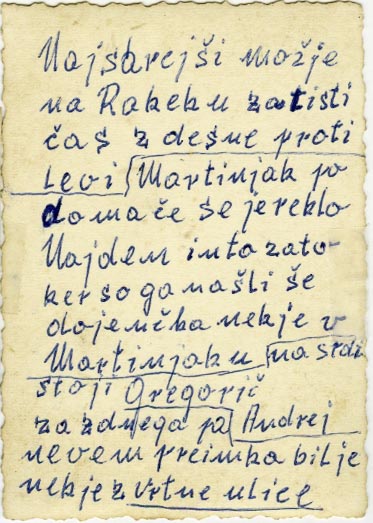 Najstarejši možje
na Rakeku za tisti
čas z desne proti
Levi Martinjak po
domače še je reklo
Najdem in to zato
ker so ga našli še
dojenčka nekje v
Martinjaku na sredi
stoji Gregorič
za zdnega pa Andrej
nevem preimka bil je
nekje z vrtne ulice